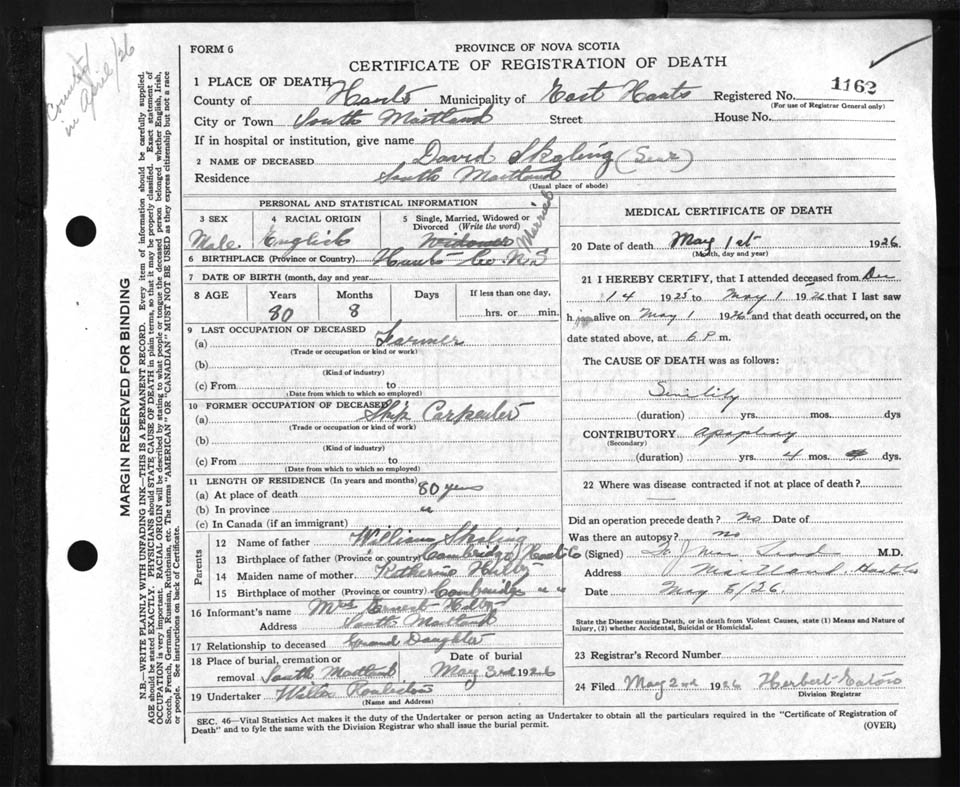 Counted in April/26
MARGIN RESERVED FOR BINDING
N.B.—WRITE PLAINLY WITH UNFADING INK—THIS IS A PERMANENT RECORD. Every item of information should be carefully supplied.
AGE should be stated EXACTLY. PHYSICIANS should STATE CAUSE OF DEATH in plain terms, so that it may be properly classified. Exact statement of
OCCUPATION is very important. RACIAL ORIGIN will be described by stating to what people or tongue the deceased person belonged whether English, Irish,
Scotch, French, German, Russian, Ruthenian, etc. The terms "AMERICAN" or "CANADIAN" MUST NOT BE USED as they express citizenship but not a race
or people. See instructions on back of Certificate.
FORM 6
PROVINCE OF NOVA SCOTIA
CERTIFICATE OF REGISTRATION OF DEATH
1 PLACE OF DEATH
County of Hants Municipality of East Hants Registered No. 1162
(For use of Registrar General only)
City or Town South Maitland Street House No.
If in hospital or institution, give name
2 NAME OF DECEASED David Skaling (Senr)
Residence South Maitland
(Usual place of abode)
PERSONAL AND STATISTICAL INFORMATION
3 SEX 4 RACIAL ORIGIN 5 Single, Married, Widowed or Divorced (Write the word)
Male. English Widower Married
6 BIRTHPLACE (Province or Country) Hants Co N.S
7 DATE OF BIRTH (month, day and year)
8 AGE Years Months Days If less than one day,
80 8 hrs. or min.
9 LAST OCCUPATION OF DECEASED
(a) Farmer
(Trade or occupation or kind or work)
(b)
(Kind of industry)
(c) From to
(Date from which to which so employed)
10 FORMER OCCUPATION OF DECEASED
(a) Ship Carpenter
(Trade or occupation or kind of work)
(b)
(Kind of industry)
(c) From to
(Date from which to which so employed)
11 LENGTH OF RESIDENCE (In years and months)
(a) At place of death 80 years
(b) In province "
(c) In Canada (if an immigrant)
Parents
12 Name of father William Skaling
13 Birthplace of father (Province or country) Cambridge Hants
14 Maiden name of mother Katherine
15 Birthplace of mother (Province or country) Cambridge " "
16 Informant's name Mrs Ernest
Address South Maitland
17 Relationship to deceased Grand Daughter
18 Place of burial, cremation or removal South Maitland Date of burial May 3rd 1926
19 Undertaker Walter
(Name and Address)
MEDICAL CERTIFICATE OF DEATH
20 Date of death May 1st 1926
(Month, day and year)
21 I HEREBY CERTIFY, that I attended deceased from Dec
14 1925 to May 1 1926 that I last saw
h im alive on May 1 1926 and that death occurred, on the
date stated above, at 6 P m.
The CAUSE OF DEATH was as follows:
Senility
(duration) yrs. mos. dys
CONTRIBUTORY apoplexy
(Secondary)
(duration) yrs. 4 mos. dys.
22 Where was disease contracted if not at place of death?
Did an operation precede death? No Date of
Was there an autopsy? No
(Signed) M.D.
Address Maitland Hants
Date May 5/26.
State the Disease causing Death, or in death from Violent Causes, state (1) Means and Nature of
Injury, (2) whether Accidental, Suicidal or Homicidal.
23 Registrar's Record Number
24 Filed May 2nd 1926 Herbert
Division Registrar
SEC. 46—Vital Statistics Act makes it the duty of the Undertaker or person acting as Undertaker to obtain all the particulars required in the "Certificate of Registration of
Death" and to fyle the same with the Division Registrar who shall issue the burial permit. (OVER)